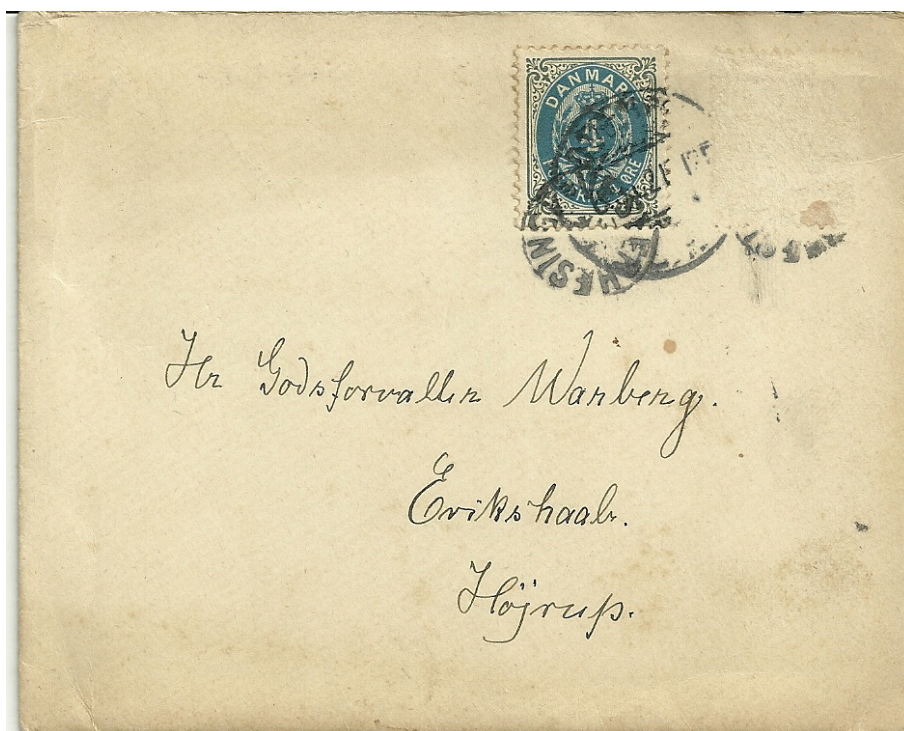 DANMARK
4
ØRE
Hr Godsforvalter Warberg.
Erikshaab.
Højrup.